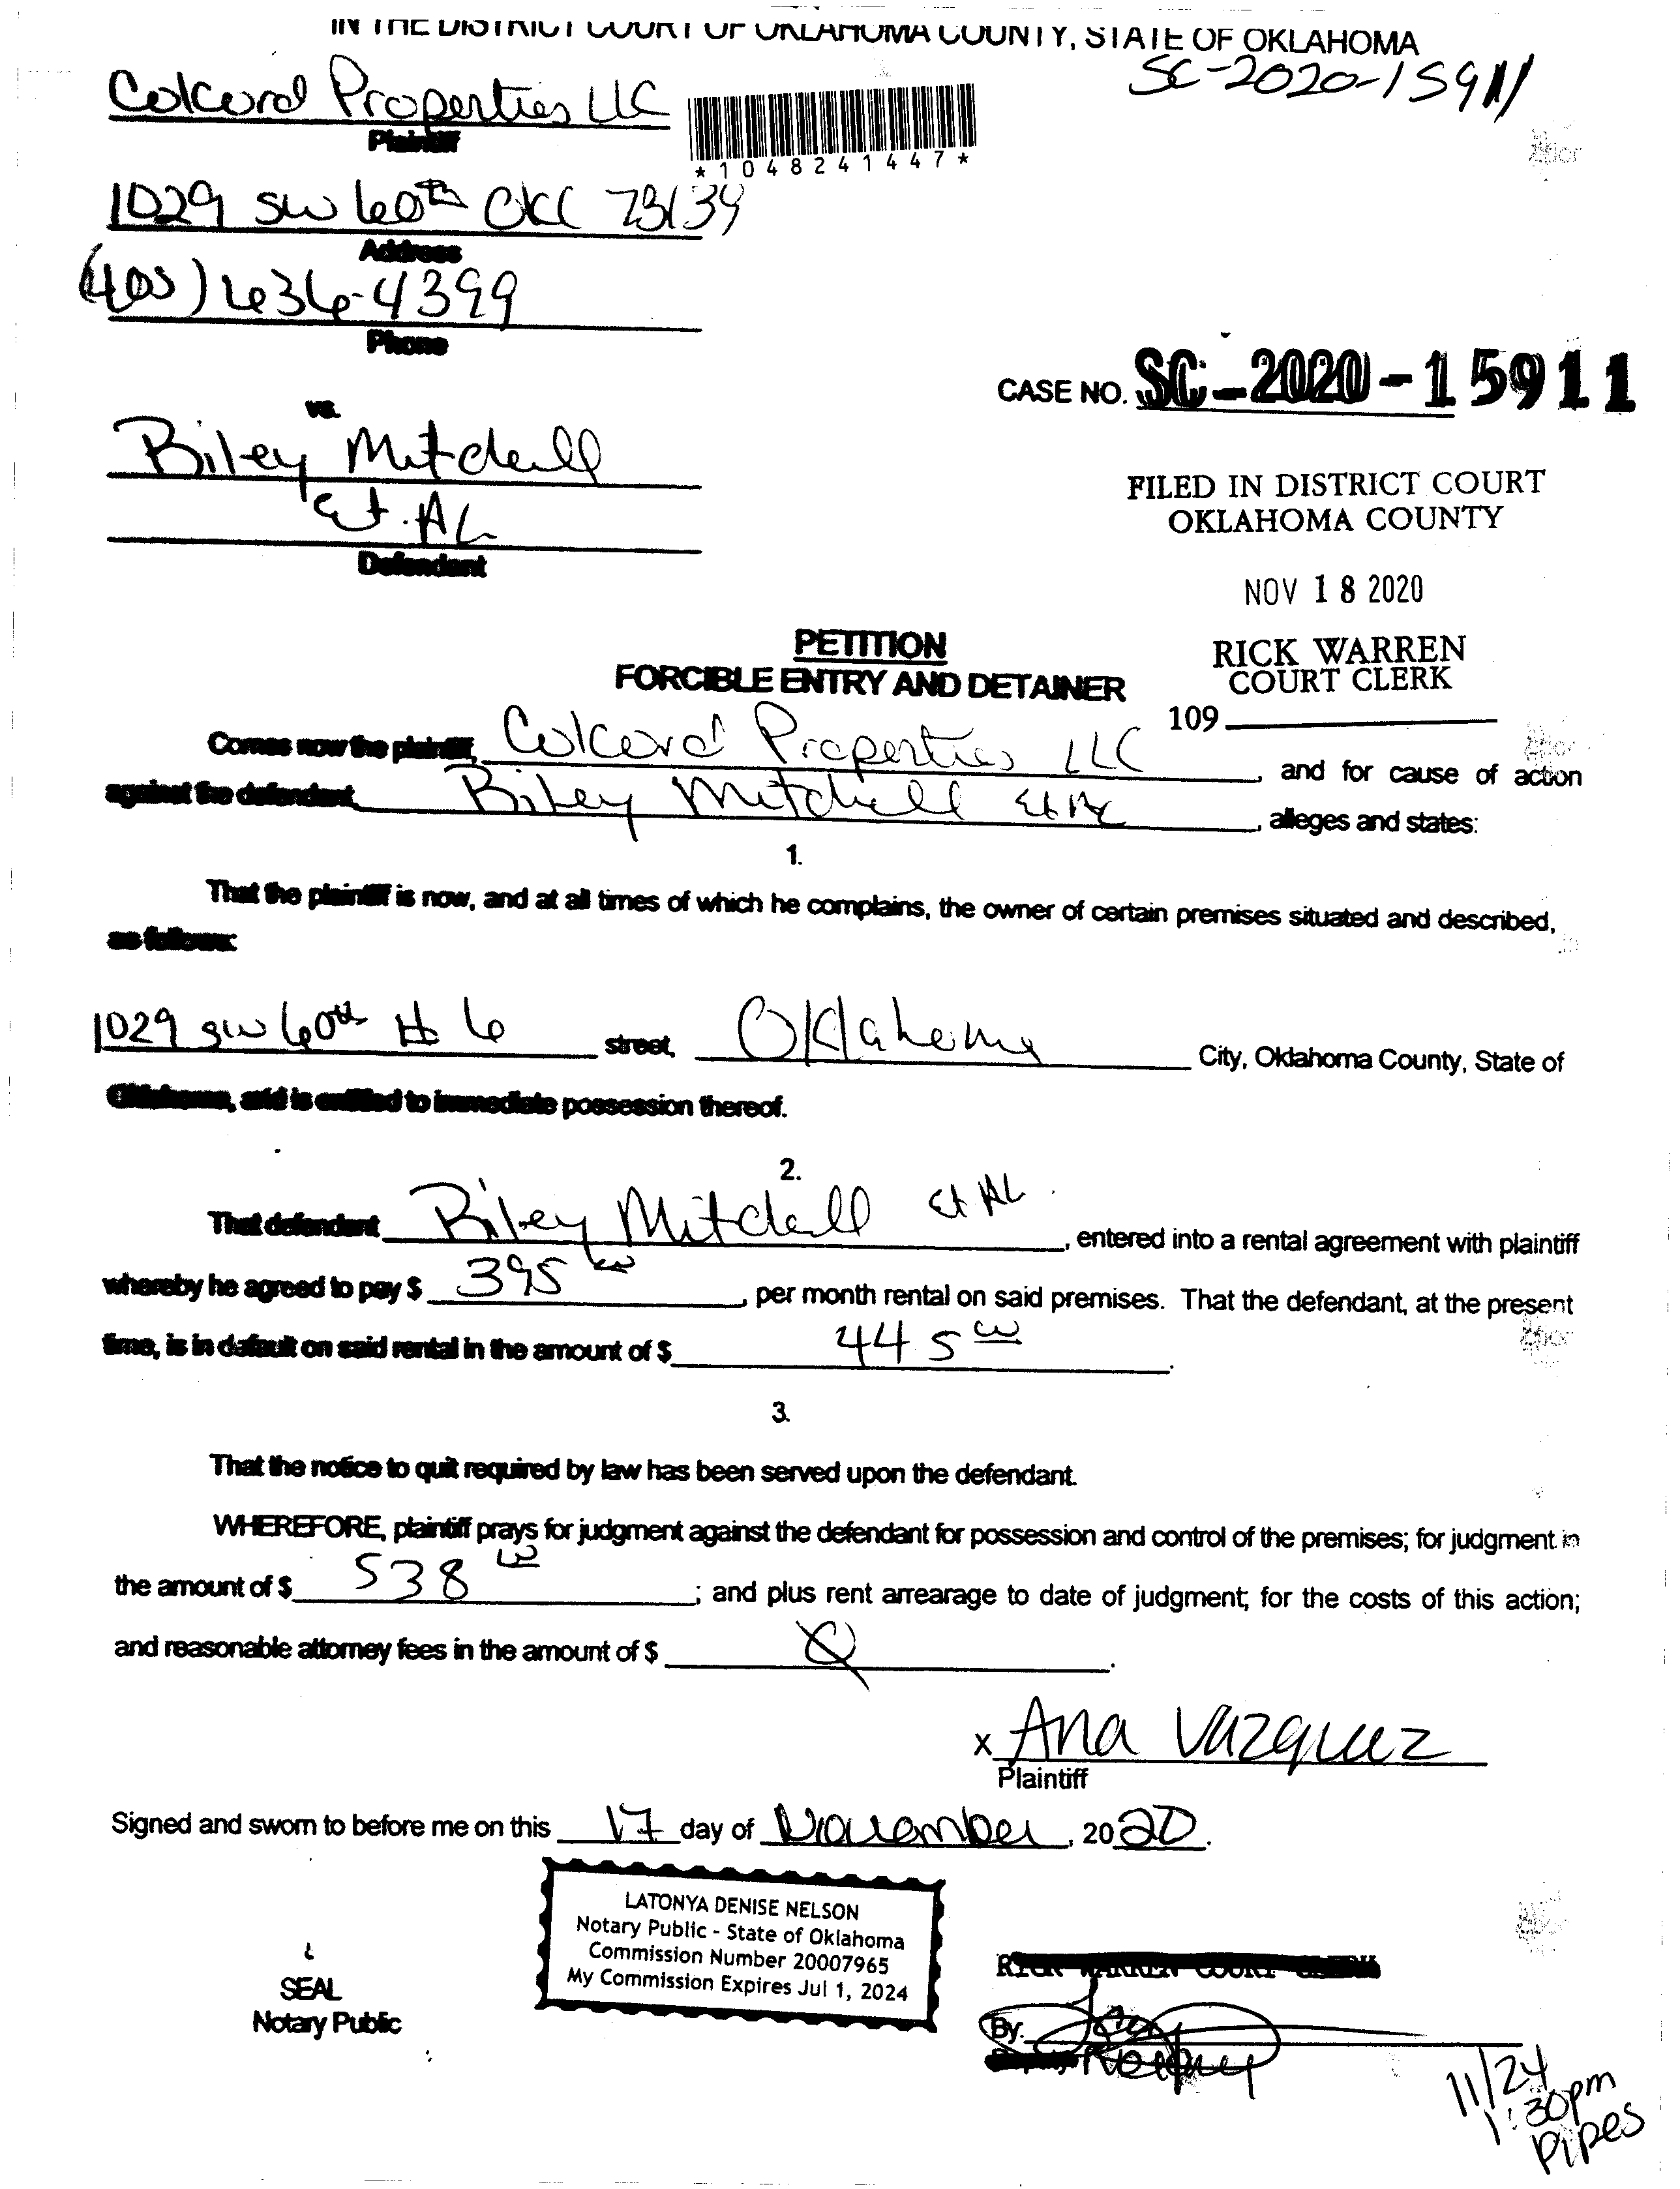 IN THE DISTRICT COURT OF OKLAHOMA COUNTY, STATE OF OKLAHOMA
SC-2020-15911
Colcord Properties LLC
Plaintiff
*1048241447*
1029 SW 60th OKC 73139
Address
(405) 636-4399
Phone
CASE NO. SC-2020-15911
vs.
Riley Mitchell
Et. AL
Defendant
FILED IN DISTRICT COURT
OKLAHOMA COUNTY
NOV 18 2020
RICK WARREN
COURT CLERK
109
PETITION
FORCIBLE ENTRY AND DETAINER
Comes now the plaintiff, Colcord Properties LLC, and for cause of action
against the defendant, Riley Mitchell Et AL, alleges and states:
1.
That the plaintiff is now, and at all times of which he complains, the owner of certain premises situated and described,
as follows:
1029 SW 60th # 6 street, Oklahoma City, Oklahoma County, State of
Oklahoma, and is entitled to immediate possession thereof.
2.
That defendant Riley Mitchell Et AL, entered into a rental agreement with plaintiff
whereby he agreed to pay $ 395 00, per month rental on said premises. That the defendant, at the present
time, is in default on said rental in the amount of $ 445 00.
3.
That the notice to quit required by law has been served upon the defendant.
WHEREFORE, plaintiff prays for judgment against the defendant for possession and control of the premises; for judgment in
the amount of $ 538 00; and plus rent arrearage to date of judgment; for the costs of this action;
and reasonable attorney fees in the amount of $ 0.
x Ana Vazquez
Plaintiff
Signed and sworn to before me on this 17 day of November, 2020.
LATONYA DENISE NELSON
Notary Public - State of Oklahoma
Commission Number 20007965
My Commission Expires Jul 1, 2024
SEAL
Notary Public
RICK WARREN COURT CLERK
By:
Deputy
11/24
1:30pm
Pipes